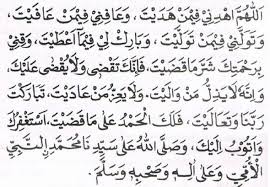 اَللّٰهُمَّ اهْدِنِيْ فِيْمَنْ هَدَيْتَ ، وَعَافِنِيْ فِيْمَنْ عَافَيْتَ
وَتَوَلَّنِيْ فِيْمَنْ تَوَلَّيْتَ ، وَبَارِكْ لِيْ فِيْمَا أَعْطَيْتَ ، وَقِنِيْ
بِرَحْمَتِكَ شَرَّ مَا قَضَيْتَ ، فَإِنَّكَ تَقْضِيْ وَلَا يُقْضٰى عَلَيْكَ
وَإِنَّهُ لَا يَذِلُّ مَنْ وَالَيْتَ. وَلَا يَعِزُّ مَنْ عَادَيْتَ، تَبَارَكْتَ
رَبَّنَا وَتَعَالَيْتَ ، فَلَكَ الْحَمْدُ عَلٰى مَا قَضَيْتَ، أَسْتَغْفِرُكَ
وَأَتُوْبُ إِلَيْكَ ، وَصَلَّى اللهُ عَلٰى سَيِّدِنَا مُحَمَّدٍ النَّبِيِّ
الْأُمِّيِّ وَعَلٰى اٰلِهِ وَصَحْبِهِ وَسَلَّمَ.